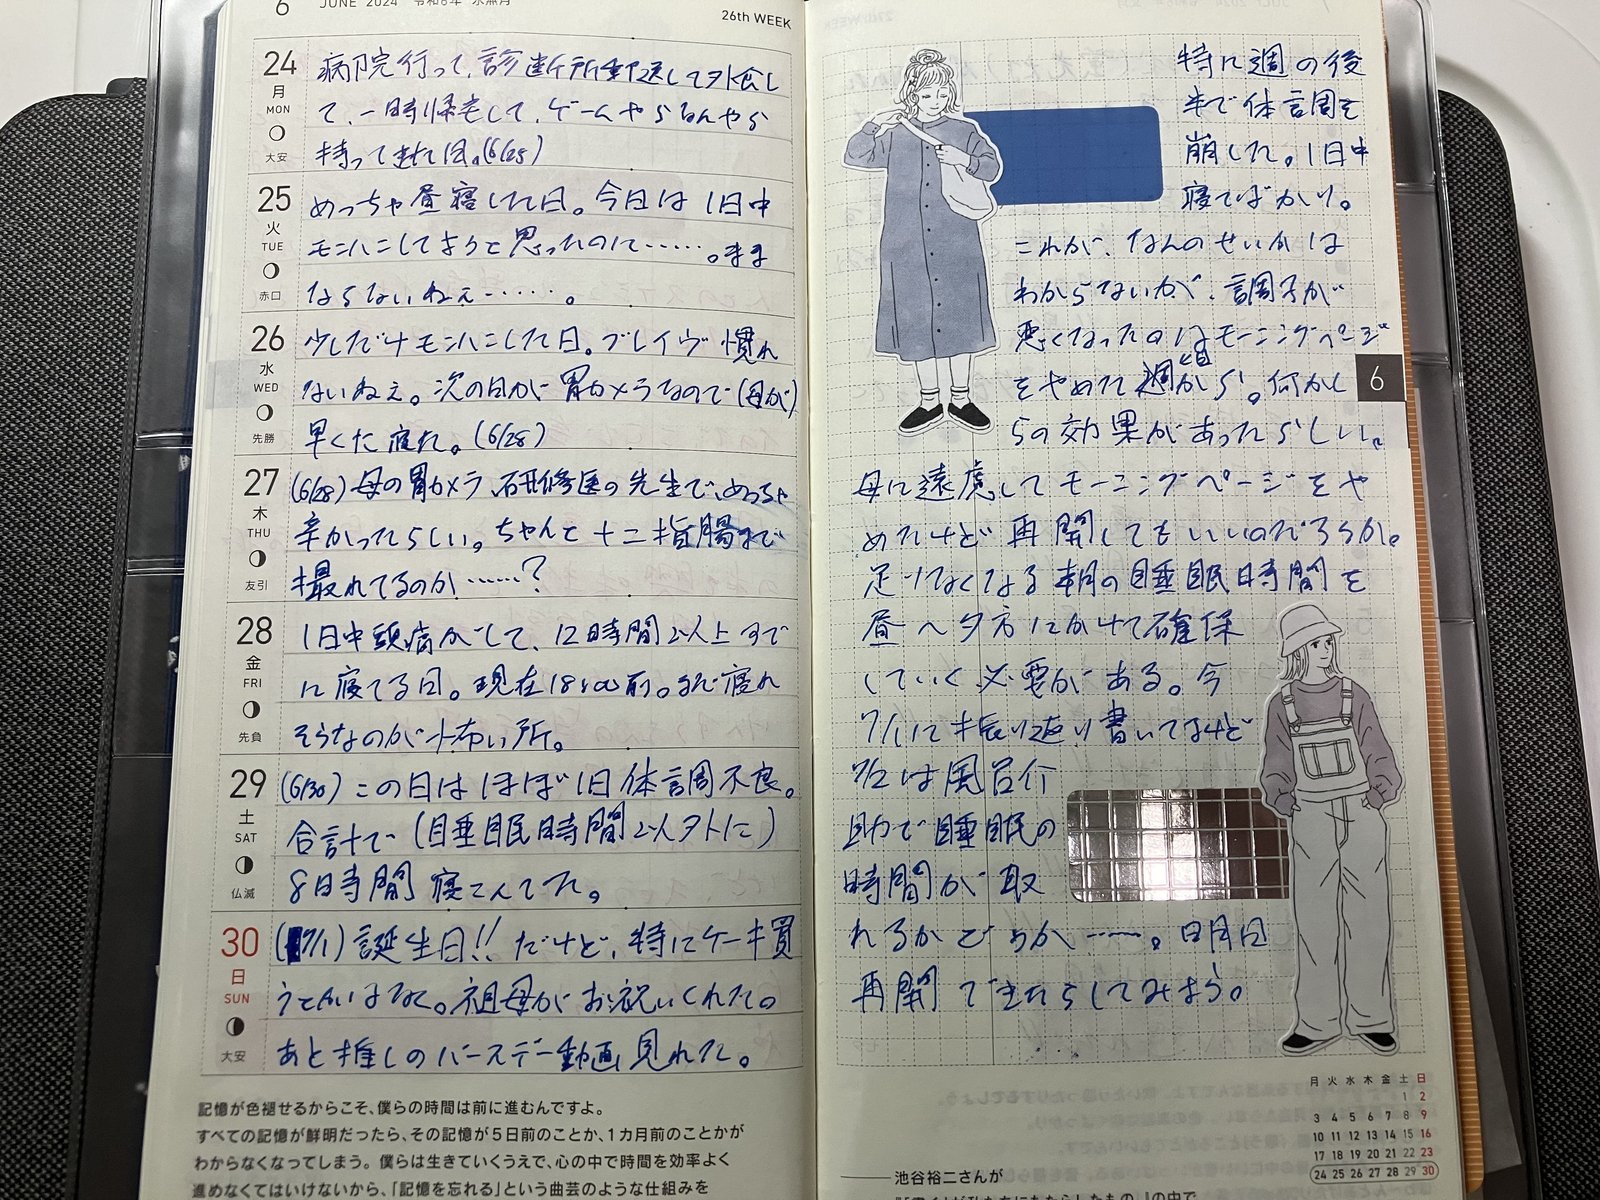 6 JUNE 2024 令和6年 水無月
26th WEEK
24 月 MON 大安
病院行って、診断所郵送して外食し
て、一時帰宅して、ゲームやらなんやら
持ってきた日。(6/25)
25 火 TUE 赤口
めっちゃ昼寝した日。今日は1日中
モンハンしてようと思ったのに……。まま
ならないねぇ……。
26 水 WED 先勝
少しだけモンハンした日。ブレイヴ慣れ
ないねぇ。次の日が胃カメラなので(母が)
早くた寝た。(6/28)
27 木 THU 友引
(6/28)母の胃カメラ、研修医の先生で、めっちゃ
辛かったらしい。ちゃんと十二指腸まで
撮れてるのか……?
28 金 FRI 先負
1日中頭痛がして、12時間以上すで
に寝てる日。現在18:00前。まだ寝れ
そうなのが怖い所。
29 土 SAT 仏滅
(6/30)この日はほぼ1日体調不良。
合計で(睡眠時間以外に)
8時間寝こんでた。
30 日 SUN 大安
(7/1)誕生日!!だけど、特にケーキ買
うとかはなく。祖母がお祝いくれた。
あと推しのバースデー動画見れた。
記憶が色褪せるからこそ、僕らの時間は前に進むんですよ。
すべての記憶が鮮明だったら、その記憶が5日前のことか、1カ月前のことかが
わからなくなってしまう。僕らは生きていくうえで、心の中で時間を効率よく
進めなくてはいけないから、「記憶を忘れる」という曲芸のような仕組みを
特に週の後
半で体調を
崩した。1日中
寝てばかり。
これが、なんのせいかは
わからないが、調子が
悪くなったのはモーニングページ
をやめた週から。何かし
らの効果があったらしい。
母に遠慮してモーニングページをや
めたけど再開してもいいのだろうか。
足りなくなる朝の睡眠時間を
昼〜夕方にかけて確保
していく必要がある。今
7/1に振り返り書いてるけど
7/2は風呂介
助で睡眠の
時間が取
れるかどうか……。明日
再開できたらしてみよう。
6
月 火 水 木 金 土 日
1 2
3 4 5 6 7 8 9
10 11 12 13 14 15 16
17 18 19 20 21 22 23
24 25 26 27 28 29 30
池谷裕二さんが